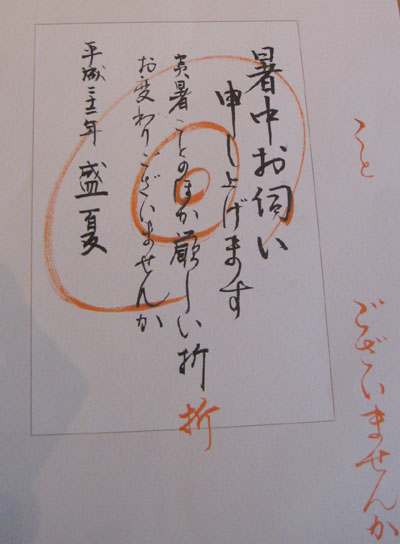 こと
ございませんか
暑中お伺い
申し上げます
炎暑ことのほか厳しい折
折
お変わりございませんか
平成二十二年 盛夏